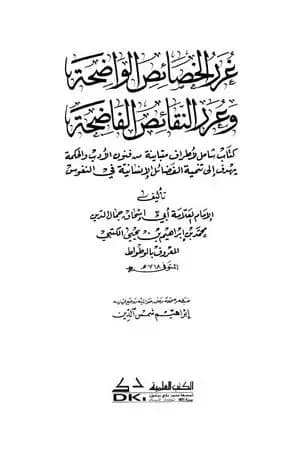 غرر الخصائص الواضحة
وعرر النقائص الفاضحة
كتاب شامل لأطراف متباينة من فنون الأدب والحكمة
يهدف إلى تنمية الفضائل الإنسانية في النفوس
تأليف
الإمام العلامة أبي إسحاق جمال الدين
محمد بن إبراهيم بن يحيى الكتبي
المعروف بالوطواط
المتوفى ٧١٨ هـ
إبراهيم شمس الدين
دار الكتب العلمية
DKi